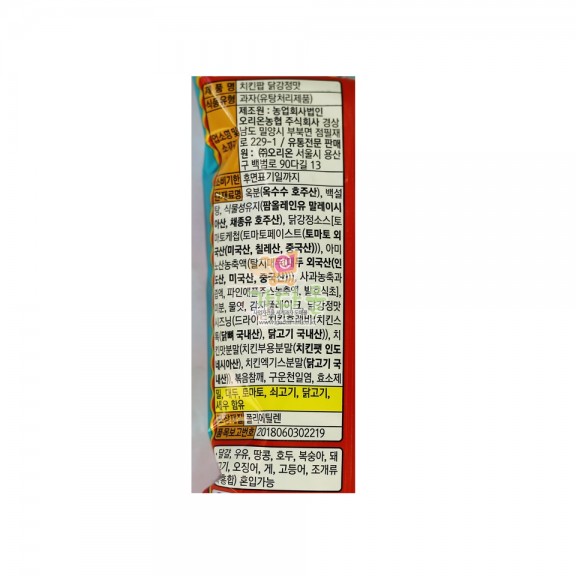 제 품 명 치킨팝 닭강정맛
식품유형 과자(유탕처리제품)
제조원 : 농업회사법인
오리온농협 주식회사 경상
남도 밀양시 부북면 점필재
로 229-1 / 유통전문 판매
원 : ㈜오리온 서울시 용산
구 백범로 90다길 13
소비기한 후면표기일까지
원재료명 옥분(옥수수 호주산), 백설
탕, 식물성유지(팜올레인유 말레이시
아산, 채종유 호주산), 닭강정소스[토
마토케첩(토마토페이스트(토마토 외
국산(미국산, 칠레산, 중국산))), 아미
노산농축액(탈시 두 외국산(인
도산, 미국산, 중국산 사과농축과
즙액, 파인애플주스농축액, 발효식초],
미분, 물엿, 감자플레이크, 닭강정맛
시즈닝(드라이 치킨스
톡(닭뼈 국내산), 닭고기 국내산)), 치
킨맛분말(치킨부용분말(치킨팻 인도
네시아산), 치킨엑기스분말(닭고기 국
내산)), 볶음참깨, 구운천일염, 효소제
밀, 대두, 토마토, 쇠고기, 닭고기,
새우 함유
폴리에틸렌
품목보고번호 2018060302219
달걀, 우유, 땅콩, 호두, 복숭아, 돼
지고기, 오징어, 게, 고등어, 조개류
혼입가능